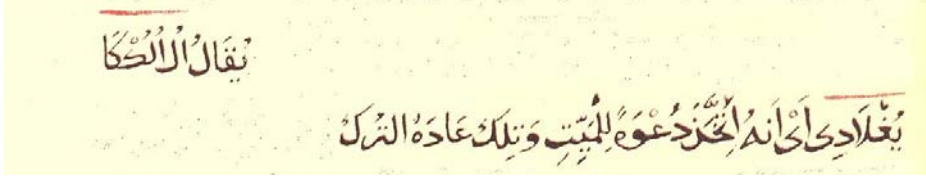 يُقَالُ اُلْ اُلُكْكَا
يُغْلَادِى اَىْ اَنهُ اِتَّخَذَ دُعْوَةً لِلْمَيِّتِ وَتِلكَ عَادَةُ التركْ